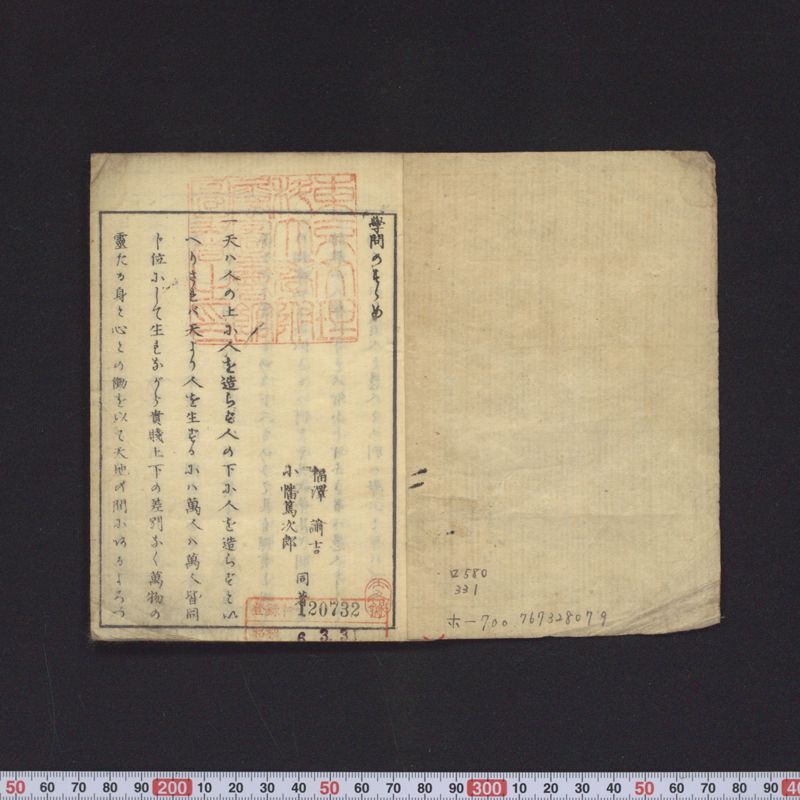 學問のすゝめ
福澤諭吉
小幡篤次郎
同著
一天ハ人の上に人を造らず人の下に人を造らずと以
へりされバ天より人を生ずるにハ萬人ハ萬人皆同
じ位にして生れながら貴賤上下の差別なく萬物の
靈たる身と心との働を以て天地の間にあるよろづ
120732
6. 3. 3
ロ580
331
ホー700.767328079
50 60 70 80 90 200 10 20 30 40 50 60 70 80 90 300 10 20 30 40 50 60 70 80 90